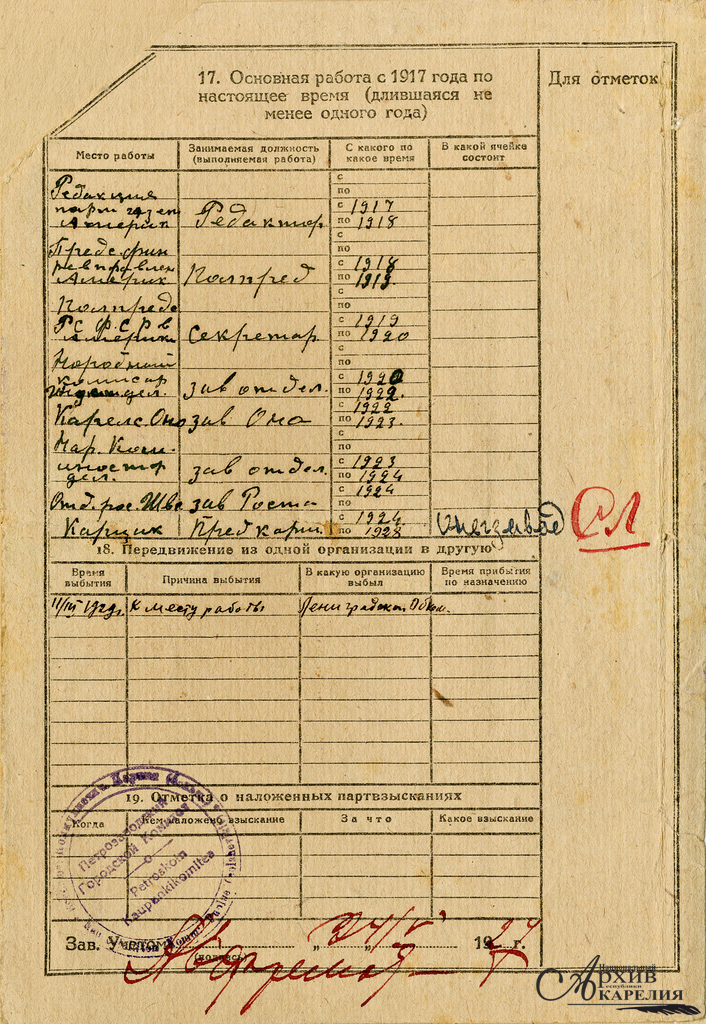 17. Основная работа с 1917 года по
настоящее время (длившаяся не
менее одного года)
Для отметок
Место работы
Занимаемая должность
(выполняемая работа)
С какого по
какое время
В какой ячейке
состоит
Редакция
Америк
Редактор
с
по
с 1917
по 1918
Предс. фин
Америк
Полпред
с
по
с 1918
по 1919.
Полпредс
РСФСР в
Америки
Секретар
с
по
с 1919
по 1920
Народный
комисар
дел.
зав отдел.
с
по
с 1920
по 1922.
Карелс. Оно
зав Оно
с 1922
по 1923.
Нар. Ком.
иностр
дел.
зав отдел.
с
по
с 1923
по 1924
Отд. рос. Шве
зав Роста
с 1924
по
Карцик
Пред карц.
с 1924
по 1928
Онегзавод
СЛ
18. Передвижение из одной организации в другую
Время
выбытия
Причина выбытия
В какую организацию
выбыл
Время прибытия
по назначению
11/III 1929г.
К месту работы
Ленинградская Обком.
19. Отметка о наложенных партвзысканиях
Когда
Кем наложено взыскание
За что
Какое взыскание
Петрозаводский
Городской Комитет
Petroskoin
Kaupunkikomitea
Зав. Учетом
(подпись)
192 г.
Национальный
Архив
Республики
Карелия